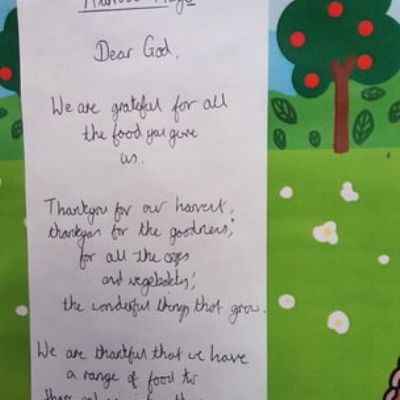 Harvest Prayer
Dear God,
We are grateful for all
the food you give
us.
Thankyou for our harvest,
thankyou for the goodness,
for all the
and vegetables,
the wonderful things that grow.
We are thankful that we have
a range of food